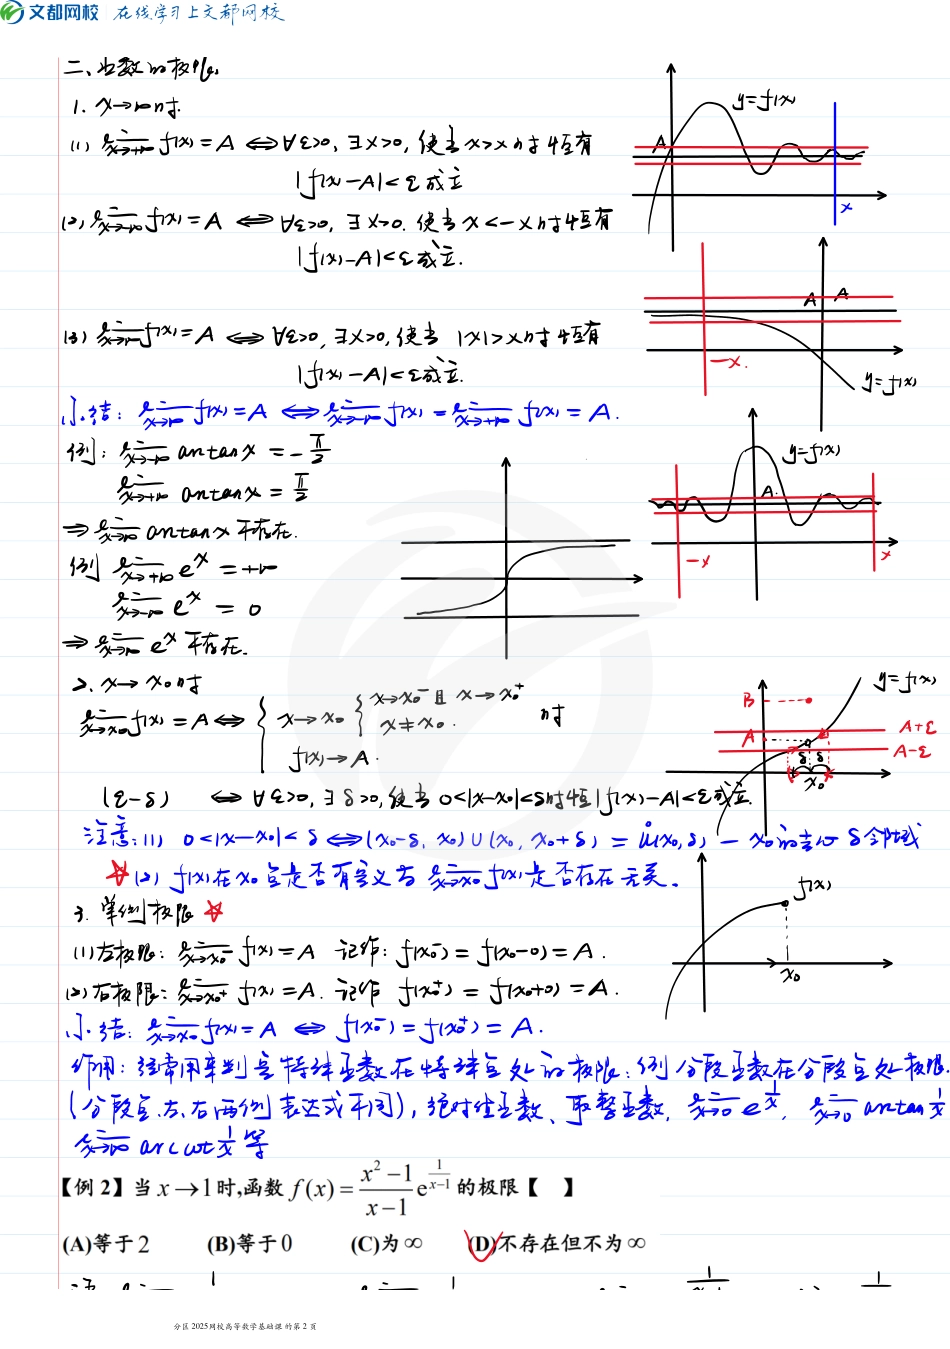 文都网校 在线学习上文都网校
二、函数的极限
1. x→∞时.
(1) lim x→+∞ f(x) = A ⇔ ∀ε>0, ∃X>0, 使当 x>X 时恒有
|f(x)-A|<ε成立
(2) lim x→-∞ f(x) = A ⇔ ∀ε>0, ∃X>0. 使当 x<-X 时恒有
|f(x)-A|<ε成立.
(3) lim x→∞ f(x) = A ⇔ ∀ε>0, ∃X>0, 使当 |x|>X 时恒有
|f(x)-A|<ε成立.
小结: lim x→∞ f(x) = A ⇔ lim x→-∞ f(x) = lim x→+∞ f(x) = A.
例: lim x→-∞ arctanx = -π/2
lim x→+∞ arctanx = π/2
⇒ lim x→∞ arctanx 不存在.
例 lim x→+∞ e^x = +∞
lim x→-∞ e^x = 0
⇒ lim x→∞ e^x 不存在.
2. x→x₀时
lim x→x₀ f(x) = A ⇔ { x→x₀ { x→x₀⁻ 且 x→x₀⁺
x≠x₀. 时
f(x)→A.
(ε-δ) ⇔ ∀ε>0, ∃δ>0, 使当 0<|x-x₀|<δ时恒|f(x)-A|<ε成立.
注意: (1) 0<|x-x₀|<δ ⇔ (x₀-δ, x₀)∪(x₀, x₀+δ) = ů(x₀,δ) — x₀的去心δ邻域
☆ (2) f(x)在x₀点是否有定义与 lim x→x₀ f(x)是否存在无关.
3. 单侧极限 ☆
(1)左极限: lim x→x₀⁻ f(x) = A 记作: f(x₀⁻) = f(x₀-0) = A.
(2)右极限: lim x→x₀⁺ f(x) = A. 记作 f(x₀⁺) = f(x₀+0) = A.
小结: lim x→x₀ f(x) = A ⇔ f(x₀⁻) = f(x₀⁺) = A.
作用: 经常用来判定特殊函数在特殊点处的极限: 例 分段函数在分段点处极限.
(分段点左、右两侧表达式不同), 绝对值函数、取整函数, lim x→0 e^(1/x), lim x→0 arctan 1/x
arccot 1/x 等
【例 2】当 x→1时,函数 f(x) = (x²-1)/(x-1) e^(1/(x-1)) 的极限【 】
(A)等于2 (B)等于0 (C)为∞ (D)不存在但不为∞
y=f(x)
A
x
A A
-x.
y=f(x)
y=f(x)
A.
-x x
y=f(x)
B
A A+ε
A-ε
δ δ
x₀
f(x)
x₀
分区 2025网校高等数学基础课 的第 2 页